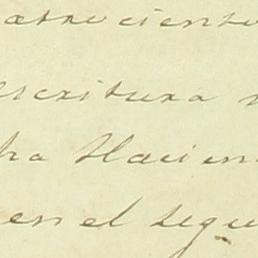 atrocientos
escritura
ha Hacien
en el segu